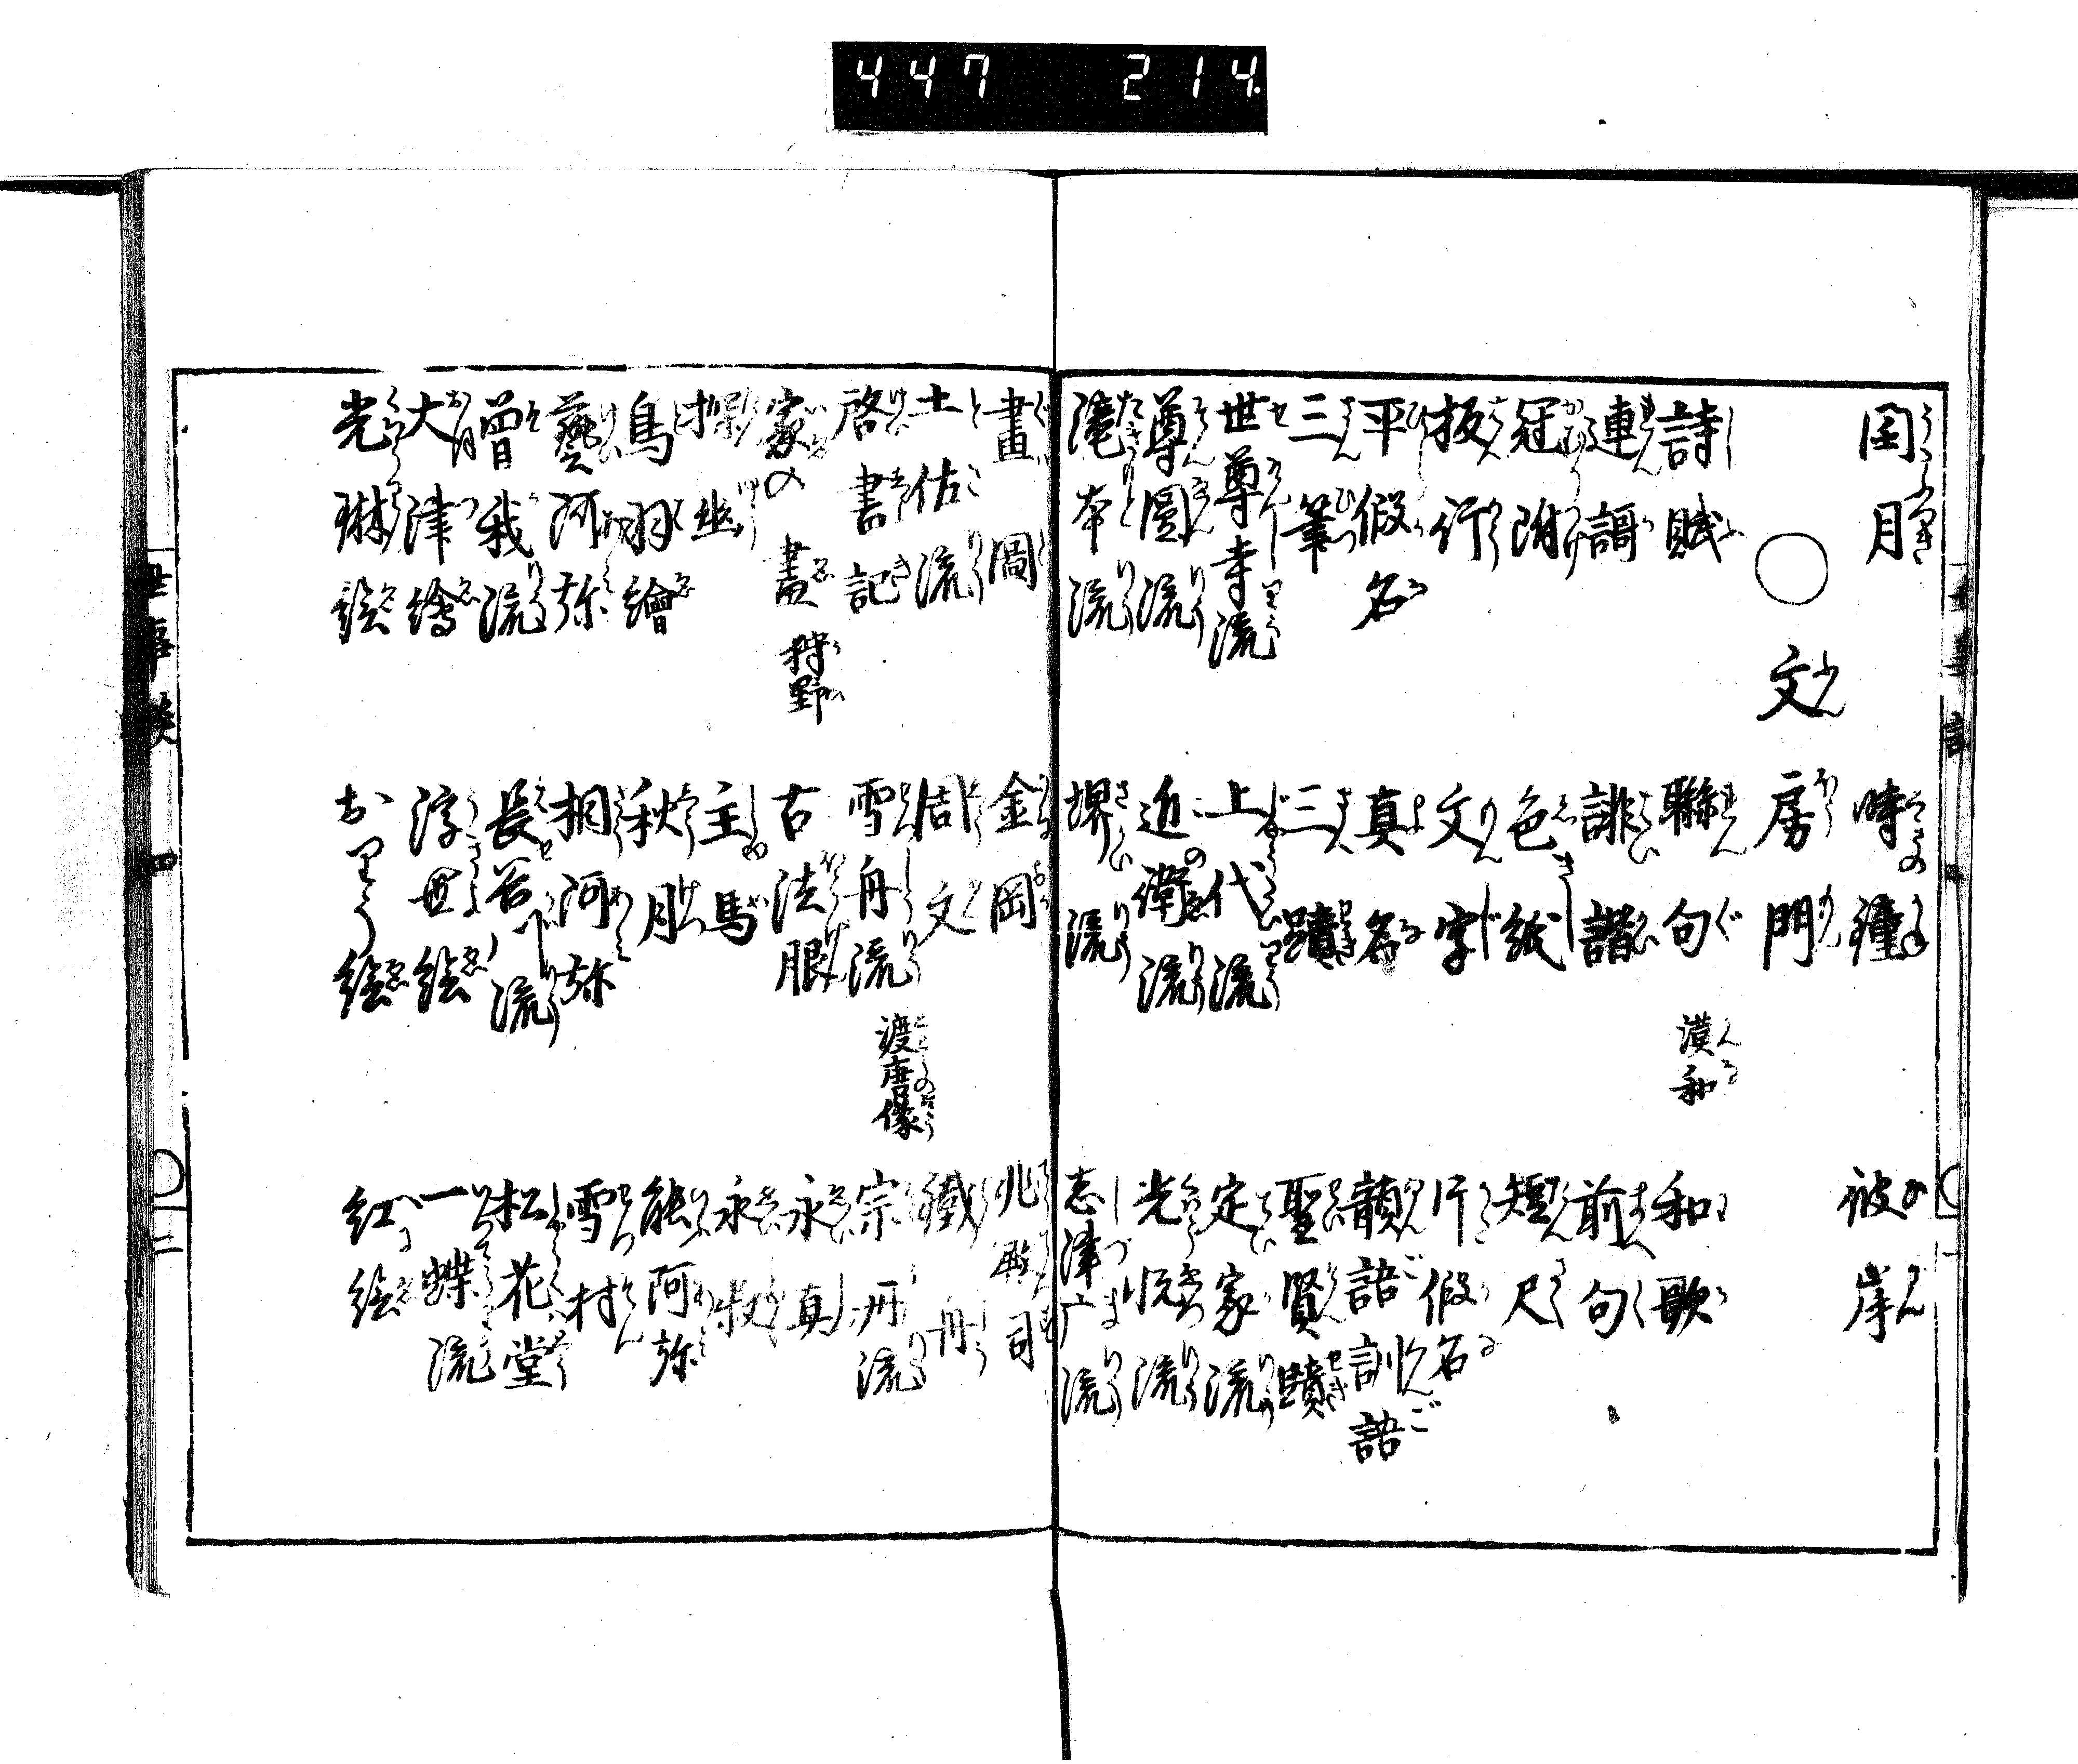 447 214
閏月 時の鐘 彼岸
○文房門
詩賦 聯句 漢和 和歌
連謌 誹諧 前句
冠附 色紙 短尺
板行 文字 片假名
平假名 真名 韻語 訓語
三筆 三蹟 聖賢蹟
世尊寺流 上代流 定家流
尊圓流 近衛流 光悦流
滝本流 堺流 志津广流
畫圖 金岡 兆殿司
土佐流 周文 鐵舟
啓書記 雪舟流 渡唐像 宗丹流
家の畫 狩野 古法眼 永真
探幽 主馬 永叔
鳥羽繪 秋月 能阿弥
藝阿弥 相阿弥 雪村
曽我流 長谷川流 松花堂
大津繪 浮世絵 一蝶流
光琳絵 おりう絵 紅絵
世事談 四